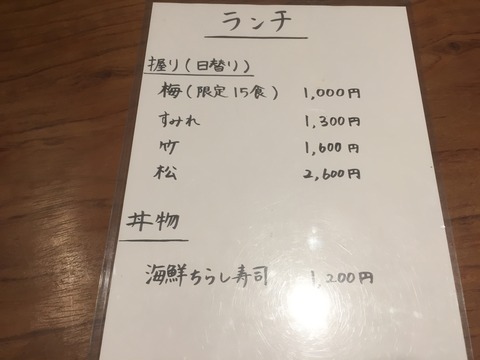 ランチ
握り(日替り)
梅(限定15食) 1,000円
すみれ 1,300円
竹 1,600円
松 2,600円
丼物
海鮮ちらし寿司 1,200円